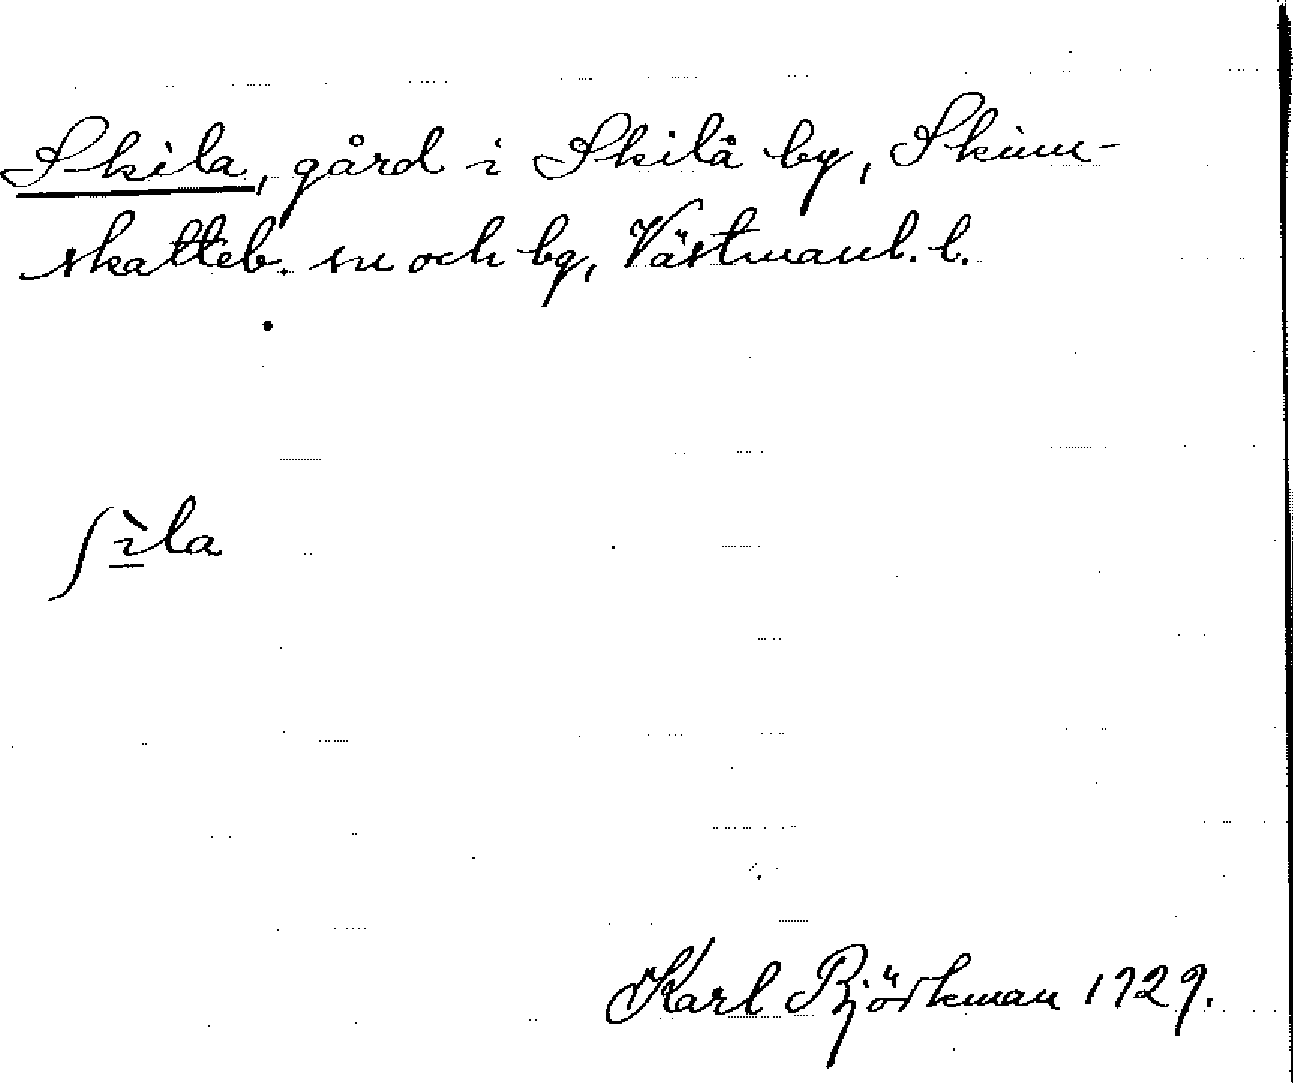 Skila, gård i Skilå by, Skinn-
skatteb. sn och bg, Västmanl. l.
ʃì̱la
Karl Björkman 1929.